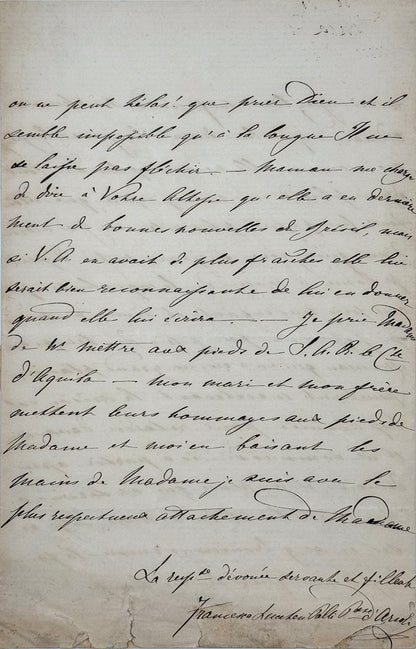 on ne peut hélas! que prier Dieu et il
semble impossible qu'à la longue Il ne
se laisse pas fléchir. — Maman me charge
de dire à Votre Altesse qu'elle a eu dernière
ment de bonnes nouvelles du Brésil, mais
si V. A en avait de plus fraîches elle lui
serait bien reconnaissante de lui en donner
quand elle lui écrira — Je prie Madame
de me mettre aux pieds de S. A. R. le Cte
d'Aquila — mon mari et mon frère
mettent leurs hommages aux pieds de
Madame et moi en baisant les
mains de Madame je suis avec le
plus respectueux attachement de Madame
La respse dévouée servante et filleule
Francesca Lucchesi Palli Psse d'